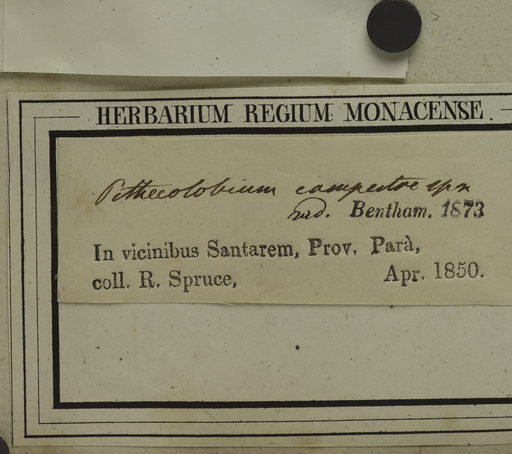 HERBARIUM REGIUM MONACENSE.
Pithecolobium campestre spr
vid. Bentham. 1873
In vicinibus Santarem, Prov. Parà,
coll. R. Spruce, Apr. 1850.